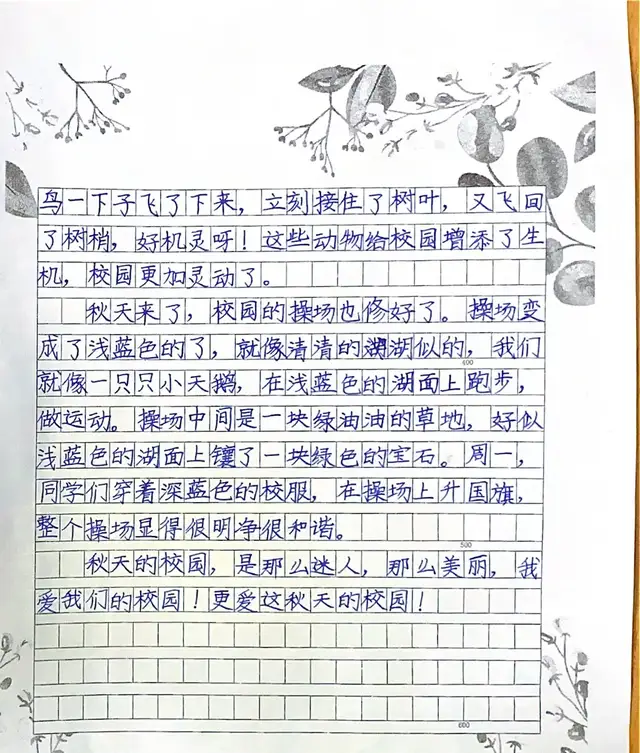 鸟一下子飞了下来，立刻接住了树叶，又飞回
了树梢，好机灵呀！这些动物给校园增添了生
机，校园更加灵动了。
秋天来了，校园的操场也修好了。操场变
成了浅蓝色的了，就像清清的湖似的，我们
400
就像一只只小天鹅，在浅蓝色的湖面上跑步，
做运动。操场中间是一块绿油油的草地，好似
浅蓝色的湖面上镶了一块绿色的宝石。周一，
同学们穿着深蓝色的校服，在操场上升国旗，
整个操场显得很明净很和谐。
500
秋天的校园，是那么迷人，那么美丽，我
爱我们的校园！更爱这秋天的校园！
600